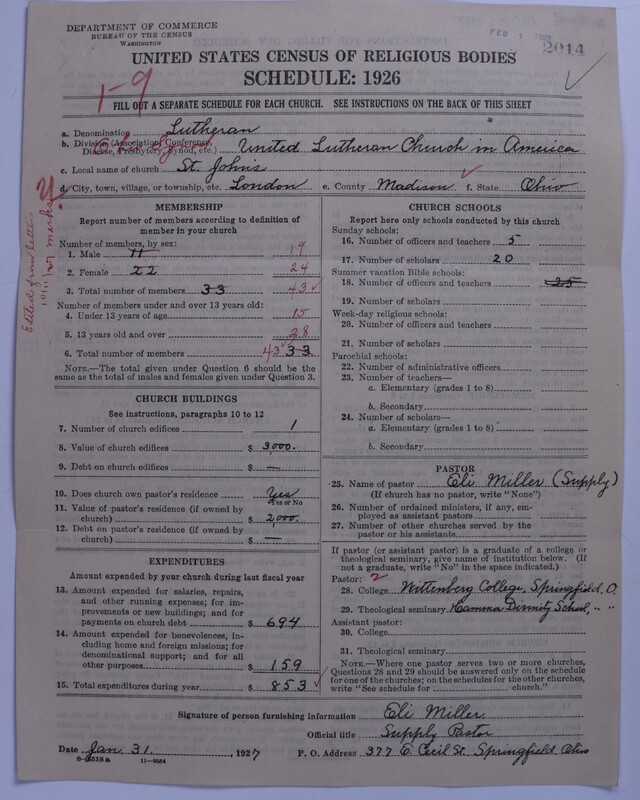 DEPARTMENT OF COMMERCE
BUREAU OF THE CENSUS
WASHINGTON
FEB 1
2014
UNITED STATES CENSUS OF RELIGIOUS BODIES
SCHEDULE: 1926
1-9
FILL OUT A SEPARATE SCHEDULE FOR EACH CHURCH. SEE INSTRUCTIONS ON THE BACK OF THIS SHEET
a. Denomination Lutheran
b. Division (Association, Conference, Diocese, Presbytery, Synod, etc.) Ohio Synod United Lutheran Church in America
c. Local name of church St. John's
d. City, town, village, or township, etc. London e. County Madison f. State Ohio
Edited from letters
MEMBERSHIP
Report number of members according to definition of
member in your church
Number of members, by sex:
1. Male 11 19
2. Female 22 24
3. Total number of members 33 43
Number of members under and over 13 years old:
4. Under 13 years of age 15
5. 13 years old and over 28
6. Total number of members 43 33
NOTE.—The total given under Question 6 should be
the same as the total of males and females given under Question 3.
CHURCH BUILDINGS
See instructions, paragraphs 10 to 12
7. Number of church edifices 1
8. Value of church edifices $ 3,000.
9. Debt on church edifices $ —
10. Does church own pastor's residence Yes
Yes or No
11. Value of pastor's residence (if owned by
church) $ 2,000.
12. Debt on pastor's residence (if owned by
church) $ —
EXPENDITURES
Amount expended by your church during last fiscal year
13. Amount expended for salaries, repairs,
and other running expenses; for im-
provements or new buildings; and for
payments on church debt $ 694
14. Amount expended for benevolences, in-
cluding home and foreign missions; for
denominational support; and for all
other purposes $ 159
15. Total expenditures during year $ 853
CHURCH SCHOOLS
Report here only schools conducted by this church
Sunday schools:
16. Number of officers and teachers 5
17. Number of scholars 20
Summer vacation Bible schools:
18. Number of officers and teachers 25
19. Number of scholars
Week-day religious schools:
20. Number of officers and teachers
21. Number of scholars
Parochial schools:
22. Number of administrative officers
23. Number of teachers—
a. Elementary (grades 1 to 8)
b. Secondary
24. Number of scholars—
a. Elementary (grades 1 to 8)
b. Secondary
PASTOR
25. Name of pastor Eli Miller (Supply)
(If church has no pastor, write "None")
26. Number of ordained ministers, if any, em-
ployed as assistant pastors
27. Number of other churches served by the
pastor or his assistants
If pastor (or assistant pastor) is a graduate of a college or
theological seminary, give name of institution below. (If
not a graduate, write "No" in the space indicated.)
Pastor: 2
28. College Wittenberg College, Springfield, O.
29. Theological seminary Hamma Divinity School, " "
Assistant pastor:
30. College
31. Theological seminary
NOTE.—Where one pastor serves two or more churches,
Questions 28 and 29 should be answered only on the schedule
for one of the churches; on the schedules for the other churches,
write "See schedule for church."
Signature of person furnishing information Eli Miller.
Official title Supply Pastor
Date Jan. 31, 1927 P. O. Address 377 E. Cecil St. Springfield, Ohio
8-5518a 11-9584